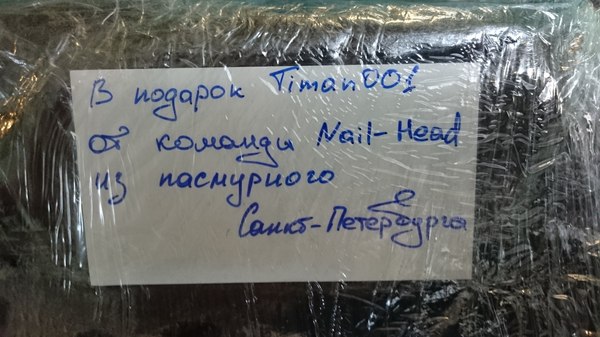 В подарок Timan001
от команды Nail-Head
из пасмурного
Санкт-Петербурга